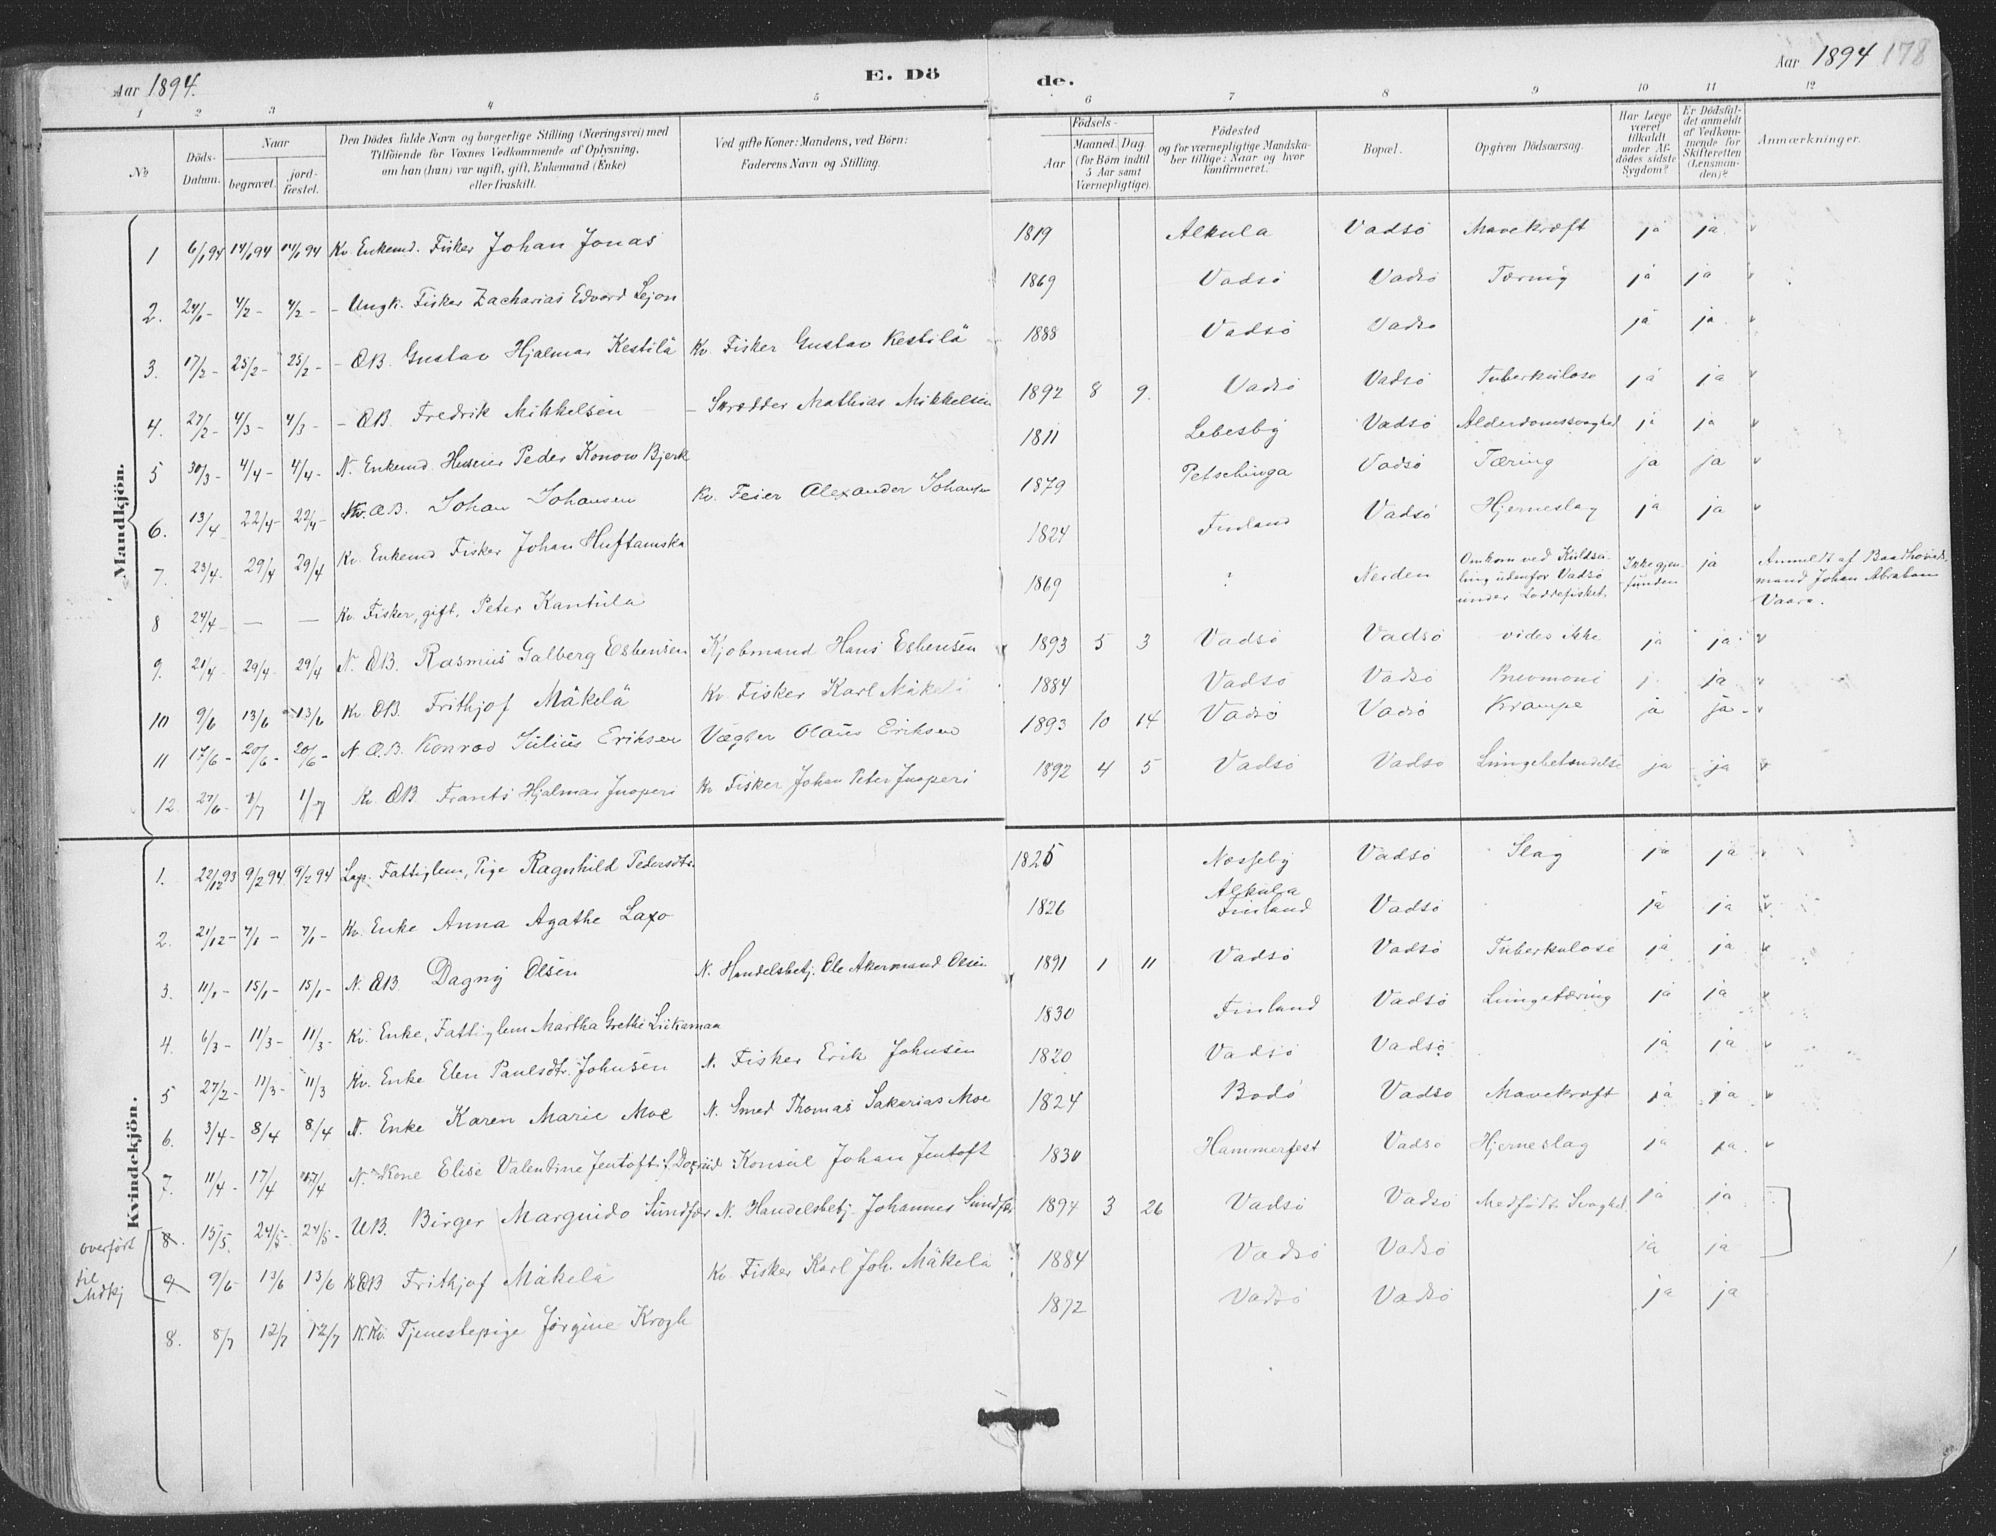 Aar 1894.
E. Dö
de.
Aar 1894 178
1 2 3 4 5 6 7 8 9 10 11 12
No
Döds-Datum.
Naar
begravet.
jord-fæstet.
Den Dödes fulde Navn og borgerlige Stilling (Næringsvei) med
Tilföiende for Voxnes Vedkommende af Oplysning,
om han (hun) var ugift, gift, Enkemand (Enke)
eller fraskilt.
Ved gifte Koner: Mandens, ved Börn:
Faderens Navn og Stilling.
Födsels-
Aar
Maaned. Dag.
(for Börn indtil
5 Aar samt
Værnepligtige)
Födested
og for værnepligtige Mandska-
ber tillige: Naar og hvor
konfirmeret.
Bopæl.
Opgiven Dödsaarsag.
Har Læge
været
tilkaldt
under Af-
dödes sidste
Sygdom?
Er Dödsfal-
det anmeldt
af Vedkom-
mende for
Skifteretten
(Lensman-
den)?
Anmærkninger.
Mandkjön.
1 6/1 94 14/1 94 14/1 94 Kv. Enkemd. Fisker Johan Jonas 1819 Alkula Vadsö Mavekræft ja ja
2. 24/1 - 4/2 - 4/2 - - Ungk. Fisker Zacharias Edvard Lejon 1869 Vadsö Vadsö Tæring ja ja
3. 17/2 - 25/2 - 25/2 - - ÆB. Gustav Hjalmar Kestilä Kv. Fisker Gustav Kestilä 1888 Vadsö Vadsö ja ja
4. 27/2 - 4/3 - 4/3 - - ÆB. Fredrik Mikkelsen - Skrædder Mathias Mikkelsen 1892 8 9. Vadsö Vadsö Tuberkulose ja ja
5 30/3 - 4/4 - 4/4 - N. Enkemd. Huseier Peder Konow Bjerk 1811 Lebesby Vadsö Alderdomssvaghed ja ja
6. 13/4 22/4 - 22/4 - Kv. ÆB. Johan Johansen Kv. Feier Alexander Johansen 1879 Petschinga Vadsö Tæring ja ja
7. 23/4. 29/4 29/4 Kv. Enkemd Fisker Johan Huftamska 1824 Finland Vadsö Hjerneslag ja ja
8 24/4 - — — Kv. Fisker, gift. Peter Kantula 1869 ? Neiden Omkom ved Kuldsei-
ling udenfor Vadsö
under Loddefisket. Ikke gjen-
funden ja Anmeldt af Baadhöveds-
mand Johan Abraham
Vaara.
9. 21/4 - 29/4 - 29/4 N. ÆB. Rasmus Galberg Esbensen Kjöbmand Hans Esbensen 1893 5 3 Vadsö Vadsö vides ikke ja ja
10 9/6 13/6 13/6 Kv. ÆB. Frithjof Mäkelä Kv. Fisker Karl Mäkelä 1884 Vadsö Vadsö Pnevmoni j. ja
11 17/6 - 20/6 - 20/6 - N. ÆB. Konrad Julius Eriksen Vægter Olaus Eriksen 1893 10 14 Vadsö Vadsö Krampe ja ja
12. 27/6 - 1/7 1/7 Kv. ÆB. Frants Hjalmar Juoperi Kv Fisker Johan Peter Juoperi 1892 4 5 Vadsö Vadsö Lungebetændelse ja ja
Kvindekjön.
1. 22/12 93 9/2 94 9/2 94 Lap. Fattiglem, Pige Ragnhild Pedersdtr. 1825 Næsseby Vadsö Slag ja ja
2. 21/12 - 7/1 - 7/1 - Kv. Enke Anna Agathe Laxo 1826 Alkula
Finland Vadsö ja ja
3. 11/1 - 15/1 - 15/1 - N. ÆB. Dagny Olsen N. Handelsbetj. Ole Akermand Olsen 1891 1 11 Vadsö Vadsö Tuberkulose ja ja
4. 6/3 - 11/3 - 11/3 - Kv. Enke, Fattiglem Martha Grethe 1830 Finland Vadsö Lungetæring ja ja
5 27/2 - 11/3 - 11/3 Kv. Enke Elen Paulsdtr. Johnsen N. Fisker Erik Johnsen 1820 Vadsö Vadsö ja ja
6. 3/4 - 8/4 8/4 N. Enke Karen Marie Moe N. Smed Thomas Sakarias Moe 1824 Bodö Vadsö Mavekræft ja ja
7. 11/4 - 17/4 17/4 N. Kone Elise Valentine Jentoft f. Konsul Johan Jentoft 1830 Hammerfest Vadsö Hjerneslag ja ja.
8. 13/5. 24/5 - 24/5 - U.B. Birger Marguido Sundfær N. Handelsbetj. Johannes Sundfær 1894 3 26 Vadsö Vadsö Medfödt Svaghed ja ja
9 9/6 - 13/6 13/6 K ÆB Frithjof Mäkelä Kv. Fisker Karl Joh. Mäkelä 1884 Vadsö Vadsö ja ja
overfört
til
Mdkj
8. 8/7 12/7 12/7 N. Kv. Tjenestepige Jörgine Krogh 1872 Vadsö Vadsö ja ja